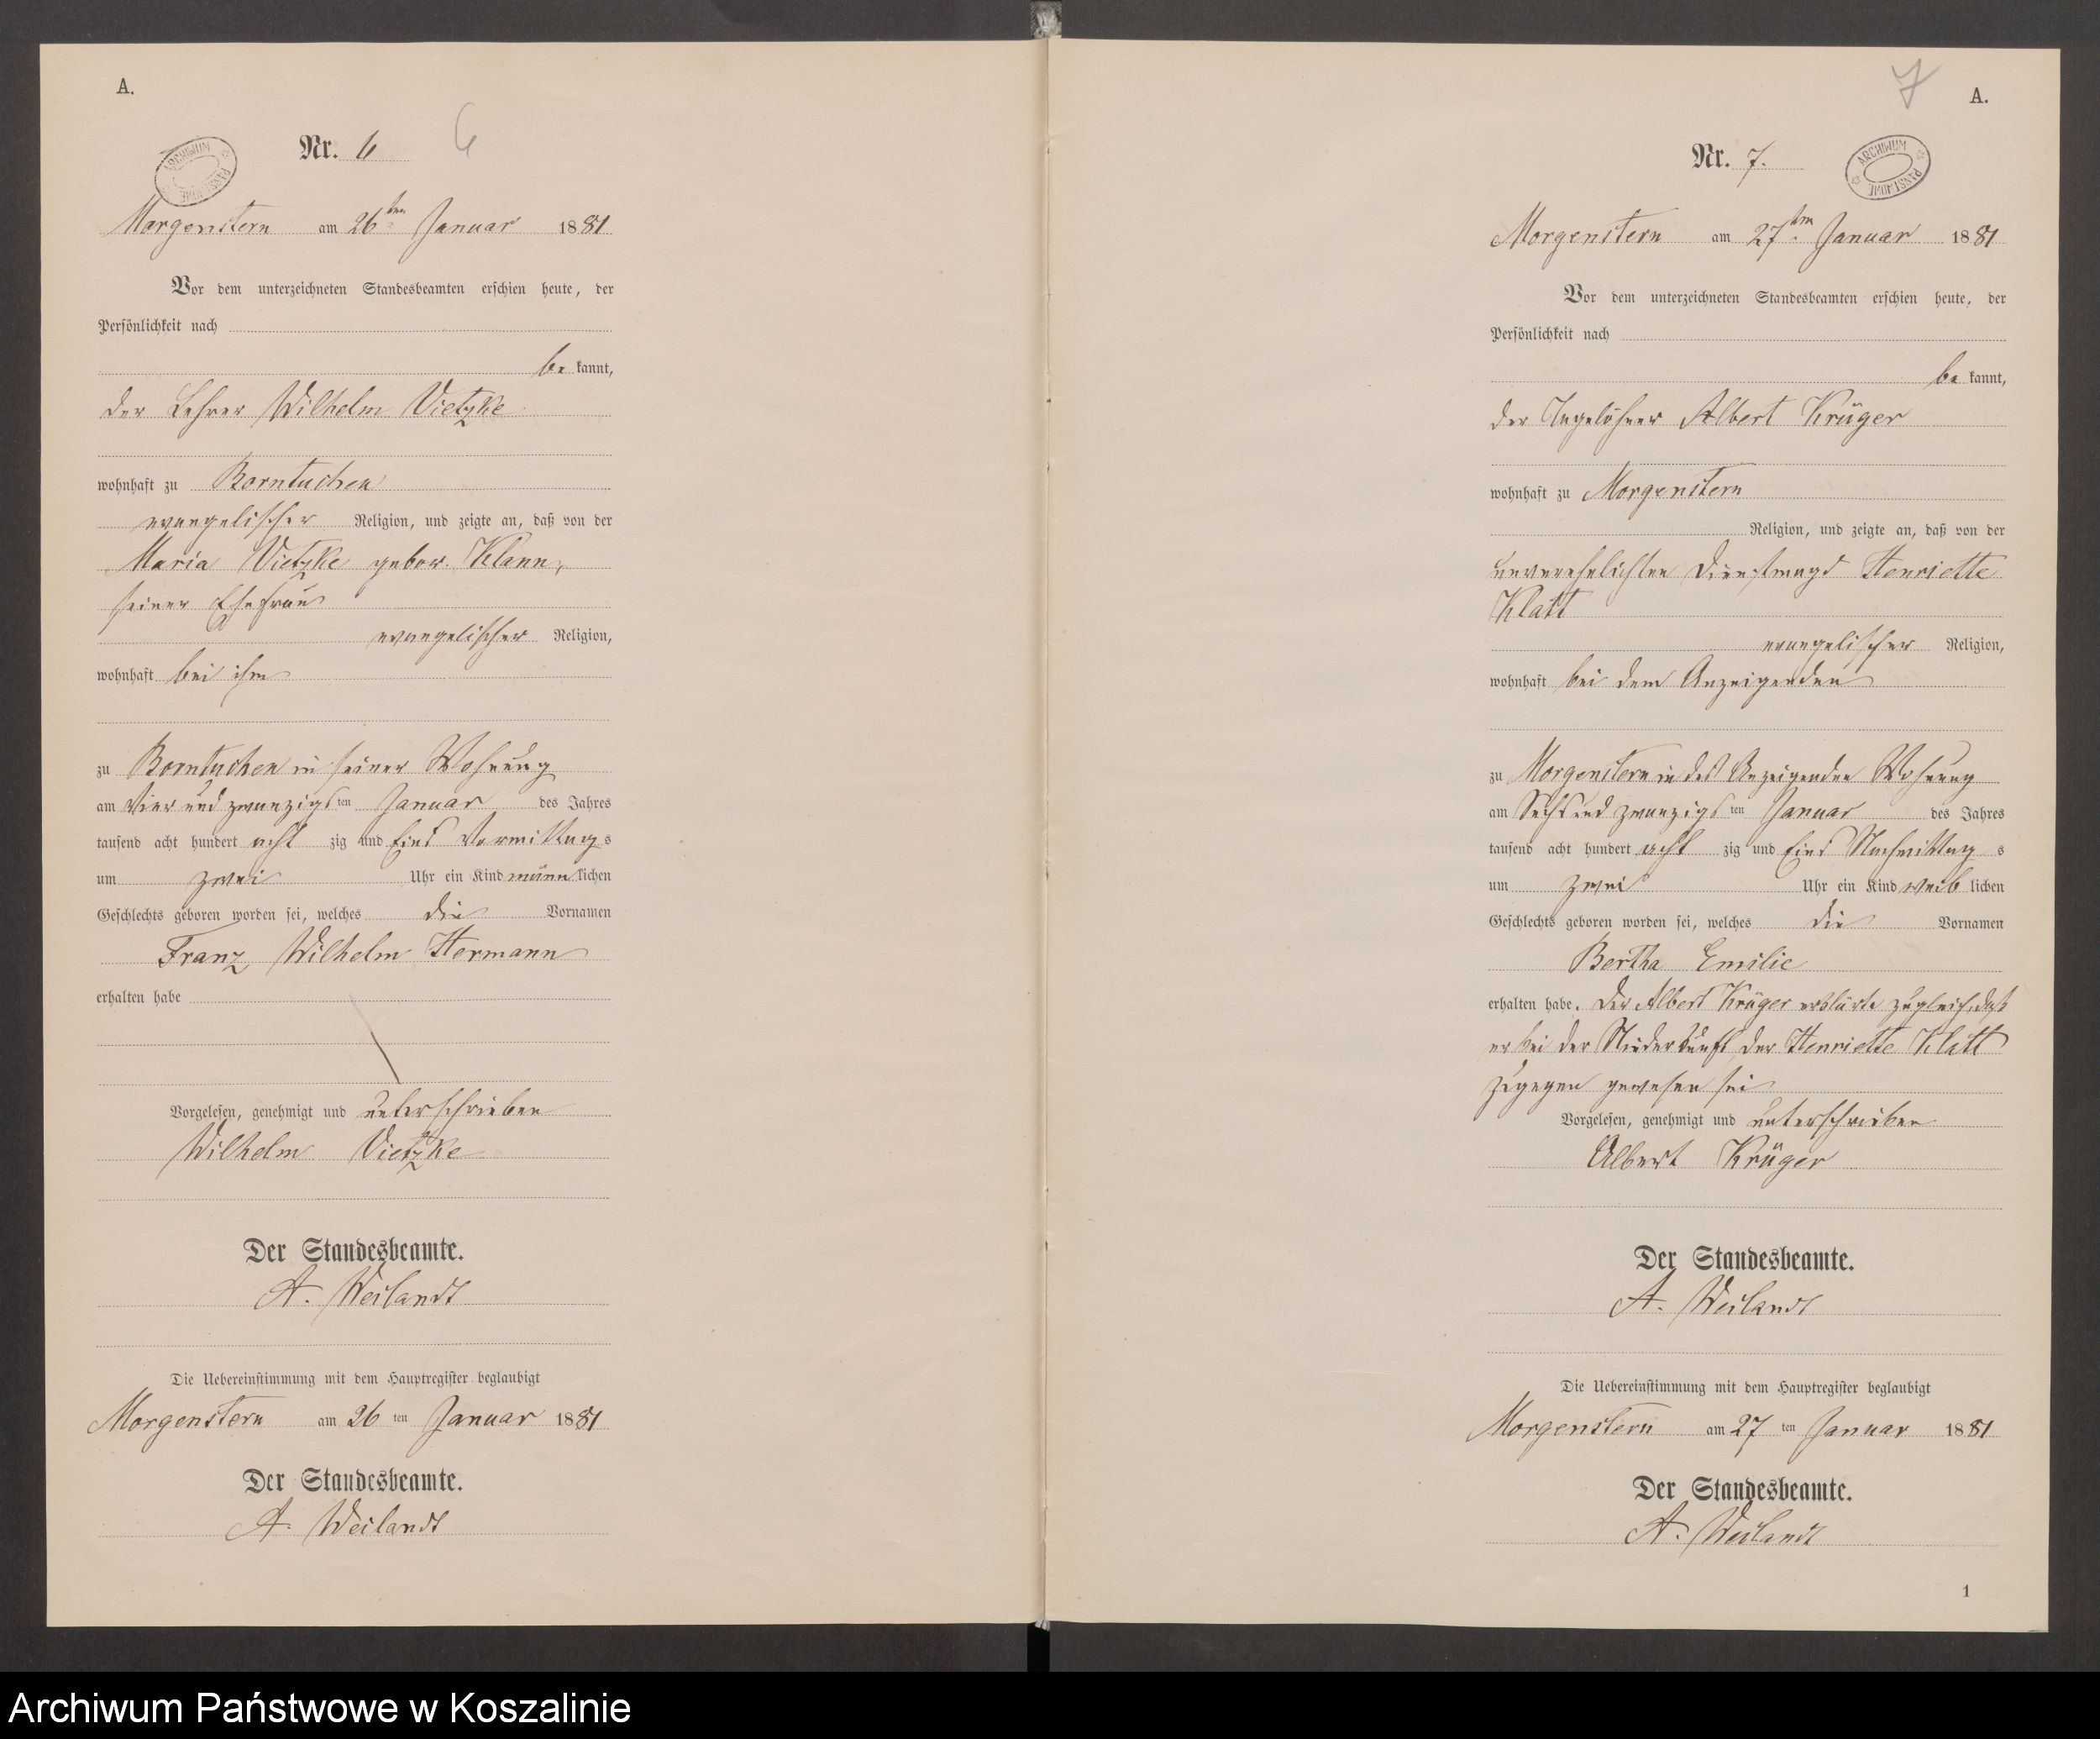 A.
Nr. 6
6
ARCHIWUM PAŃSTWOWE
Morgenstern am 26ten Januar 1881
Vor dem unterzeichneten Standesbeamten erschien heute, der
Persönlichkeit nach
be kannt,
der Lehrer Wilhelm Vietzke
wohnhaft zu Borntuchen
evangelischer Religion, und zeigte an, daß von der
Maria Vietzke gebor. Klann,
seiner Ehefrau
evangelischer Religion,
wohnhaft bei ihm
zu Borntuchen in seiner Wohnung
am vier und zwanzigsten Januar des Jahres
tausend acht hundert acht zig und Eins Vormittags
um zwei Uhr ein Kind männlichen
Geschlechts geboren worden sei, welches die Vornamen
Franz Wilhelm Hermann
erhalten habe
Vorgelesen, genehmigt und unterschrieben
Wilhelm Vietzke
Der Standesbeamte.
A. Weilandt
Die Uebereinstimmung mit dem Hauptregister beglaubigt
Morgenstern am 26 ten Januar 1881
Der Standesbeamte.
A. Weilandt
7
A.
Nr. 7.
ARCHIWUM PAŃSTWOWE
Morgenstern am 27ten Januar 1881
Vor dem unterzeichneten Standesbeamten erschien heute, der
Persönlichkeit nach
be kannt,
der Tagelöhner Albert Krüger
wohnhaft zu Morgenstern
Religion, und zeigte an, daß von der
unverehelichten Dienstmagd Henriette
Klatt
evangelischer Religion,
wohnhaft bei dem Anzeigenden
zu Morgenstern in des Anzeigenden Wohnung
am Sechs und zwanzigsten Januar des Jahres
tausend acht hundert acht zig und Eins Nachmittags
um zwei Uhr ein Kind weiblichen
Geschlechts geboren worden sei, welches die Vornamen
Bertha Emilie
erhalten habe. Der Albert Krüger erklärte zugleich, daß
er bei der Niederkunft der Henriette Klatt
zugegen gewesen sei
Vorgelesen, genehmigt und unterschrieben
Albert Krüger
Der Standesbeamte.
A. Weilandt
Die Uebereinstimmung mit dem Hauptregister beglaubigt
Morgenstern am 27 ten Januar 1881
Der Standesbeamte.
A. Weilandt
1
Archiwum Państwowe w Koszalinie